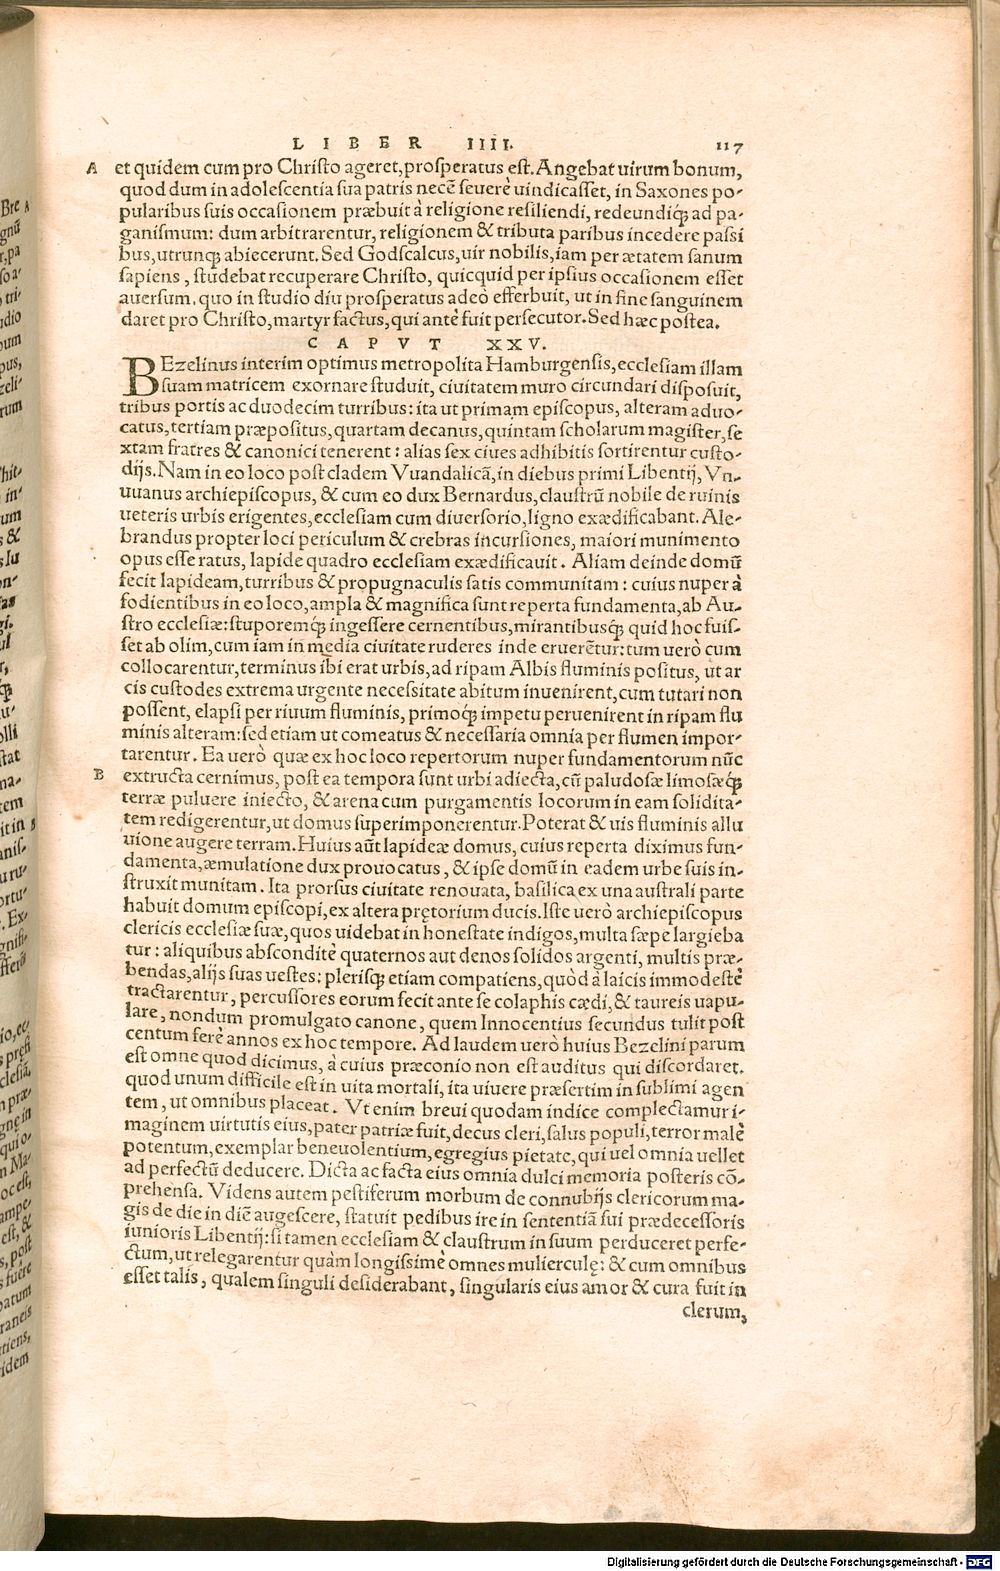 LIBER IIII. 117
A et quidem cum pro Christo ageret, prosperatus est. Angebat uirum bonum,
quod dum in adolescentia sua patris necẽ seuerè uindicasset, in Saxones po-
pularibus suis occasionem præbuit à religione resiliendi, redeundiq́; ad pa-
ganismum: dum arbitrarentur, religionem & tributa paribus incedere passi
bus, utrunq; abiecerunt. Sed Godscalcus, uir nobilis, iam per ætatem sanum
sapiens, studebat recuperare Christo, quicquid per ipsius occasionem esset
auersum. quo in studio diu prosperatus adeò efferbuit, ut in fine sanguinem
daret pro Christo, martyr factus, qui antè fuit persecutor. Sed hæc postea.
CAPVT XXV.
BEzelinus interim optimus metropolita Hamburgensis, ecclesiam illam
suam matricem exornare studuit, ciuitatem muro circundari disposuit,
tribus portis ac duodecim turribus: ita ut primam episcopus, alteram aduo-
catus, tertiam præpositus, quartam decanus, quintam scholarum magister, se
xtam fratres & canonici tenerent: alias sex ciues adhibitis sortirentur custo-
dijs. Nam in eo loco post cladem Vuandalicã, in diebus primi Libentij, Vn-
uuanus archiepiscopus, & cum eo dux Bernardus, claustrũ nobile de ruinis
ueteris urbis erigentes, ecclesiam cum diuersorio, ligno exædificabant. Ale-
brandus propter loci periculum & crebras incursiones, maiori munimento
opus esse ratus, lapide quadro ecclesiam exædificauit. Aliam deinde domũ
fecit lapideam, turribus & propugnaculis satis communitam: cuius nuper à
fodientibus in eo loco, ampla & magnifica sunt reperta fundamenta, ab Au-
stro ecclesiæ: stuporemq́; ingessere cernentibus, mirantibusq́; quid hoc fuis-
set ab olim, cum iam in media ciuitate ruderes inde eruerẽtur: tum uerò cum
collocarentur, terminus ibi erat urbis, ad ripam Albis fluminis positus, ut ar
cis custodes extrema urgente necessitate abitum inuenirent, cum tutari non
possent, elapsi per riuum fluminis, primoq́; impetu peruenirent in ripam flu
minis alteram: sed etiam ut comeatus & necessaria omnia per flumen impor-
tarentur. Ea uerò quæ ex hoc loco repertorum nuper fundamentorum nũc
B extructa cernimus, post ea tempora sunt urbi adiecta, cũ paludosæ limosæq́;
terræ puluere iniecto, & arena cum purgamentis locorum in eam solidita-
tem redigerentur, ut domus superimponerentur. Poterat & uis fluminis allu
uione augere terram. Huius aũt lapideæ domus, cuius reperta diximus fun-
damenta, æmulatione dux prouocatus, & ipse domũ in eadem urbe suis in-
struxit munitam. Ita prorsus ciuitate renouata, basilica ex una australi parte
habuit domum episcopi, ex altera prętorium ducis. Iste uerò archiepiscopus
clericis ecclesiæ suæ, quos uidebat in honestate indigos, multa sæpe largieba
tur: aliquibus absconditè quaternos aut denos solidos argenti, multis præ-
bendas, alijs suas uestes: plerisq; etiam compatiens, quòd à laicis immodestè
tractarentur, percussores eorum fecit ante se colaphis cædi, & taureis uapu-
lare, nondum promulgato canone, quem Innocentius secundus tulit post
centum ferè annos ex hoc tempore. Ad laudem uerò huius Bezelini parum
est omne quod dicimus, à cuius præconio non est auditus qui discordaret.
quod unum difficile est in uita mortali, ita uiuere præsertim in sublimi agen
tem, ut omnibus placeat. Vt enim breui quodam indice complectamur i-
maginem uirtutis eius, pater patriæ fuit, decus cleri, salus populi, terror malè
potentum, exemplar beneuolentium, egregius pietate, qui uel omnia uellet
ad perfectũ deducere. Dicta ac facta eius omnia dulci memoria posteris cõ-
prehensa. Videns autem pestiferum morbum de connubijs clericorum ma-
gis de die in diẽ augescere, statuit pedibus ire in sententiã sui prædecessoris
iunioris Libentij: si tamen ecclesiam & claustrum in suum perduceret perfe-
ctum, ut relegarentur quàm longissimè omnes mulierculę: & cum omnibus
esset talis, qualem singuli desiderabant, singularis eius amor & cura fuit in
clerum,
Digitalisierung gefördert durch die Deutsche Forschungsgemeinschaft - DFG